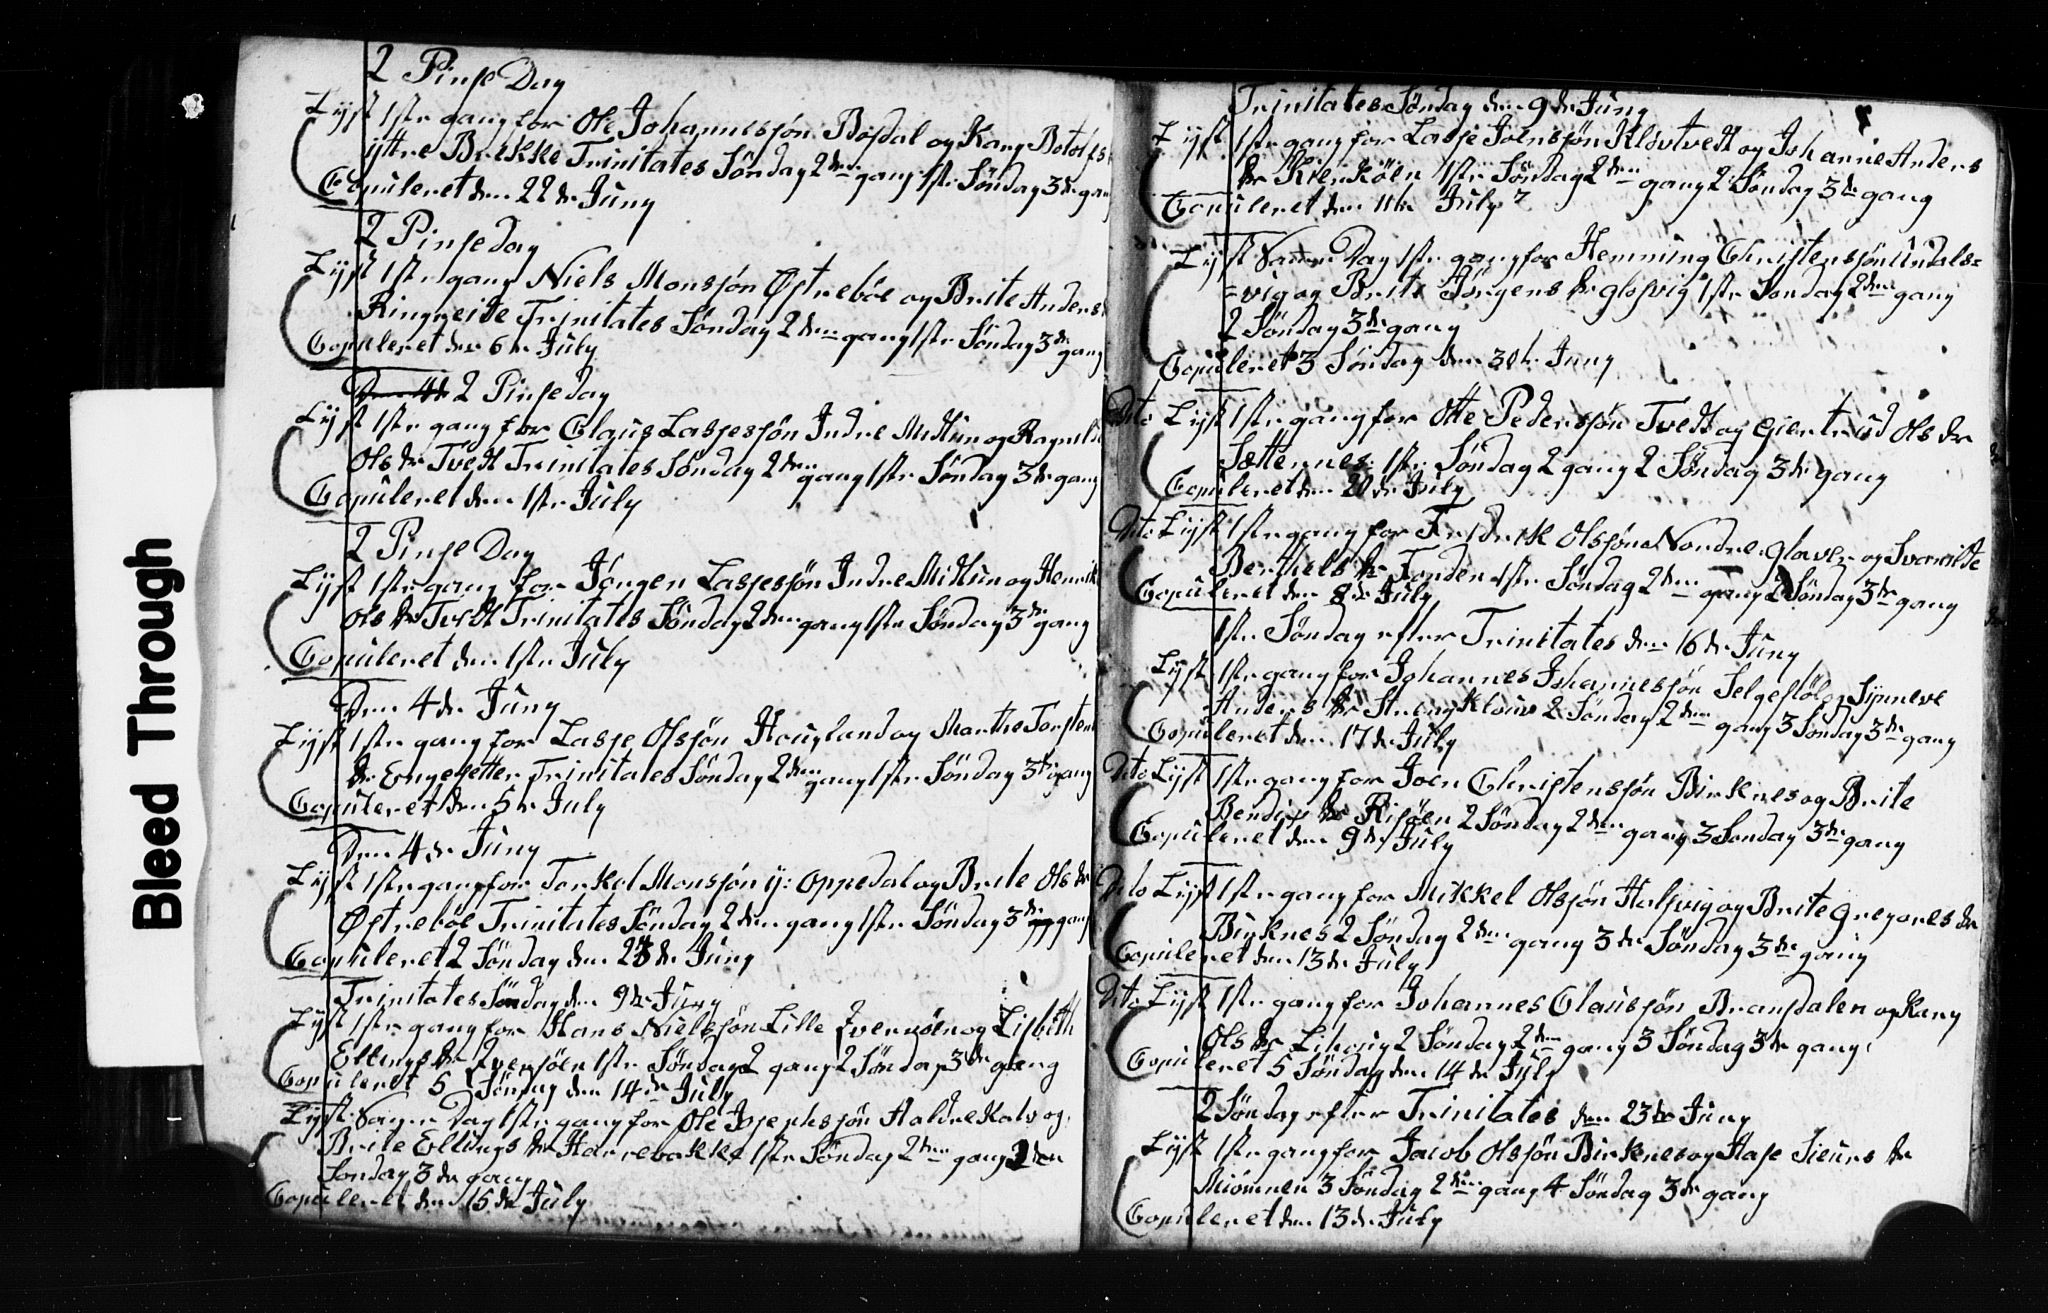 Bleed Through
2 Pinse Dag
Lyst 1ste gang for Ole Johannessøn Bøsdal og Kary Botolfs
yttre Brekke Trinitates Søndag 2den gang 1ste Søndag 3de gang
Copuleret den 22de Juny
2 Pinsedag
Lyst 1ste gang Niels Monssøn Østrebøe og Brite Anders
Ringereide Trinitates Søndag 2den gang 1ste Søndag 3de gang
Copuleret den 6te July
2 Pinsedag
Lyst 1ste gang for Claus Lassessøn Indre Midtun og Ragnilde
Ols dr Tvedt Trinitates Søndag 2den gang 1ste Søndag 3de gang
Copuleret den 1ste July
2 Pinse Dag
Lyst 1ste gang for Jørgen Lassessøn Indre Midtun og Henrik
Ols dr Tvedt Trinitates Søndag 2den gang 1ste Søndag 3de gang
Copuleret den 1ste July
Den 4de Juny
Lyst 1ste gang for Lasse Olssøn Hougland og Marthe Torstens
dr Engesetter Trinitates Søndag 2den gang 1ste Søndag 3de gang
Copuleret den 5te July
Den 4de Juny
Lyst 1ste gang for Torkel Monssøn y: Oppedal og Brite Ols dr
Østrebøe Trinitates Søndag 2den gang 1ste Søndag 3de gang
Copuleret 2 Søndag den 23de Juny
Trinitates Søndag den 9de Juny
Lyst 1ste gang for Hans Nielssøn Lille og Lisbeth
Ellings dr 1ste Søndag 2 gang 2 Søndag 3de gang
Copuleret 5 Søndag den 14de July
Lyst Samme Dag 1ste gang for Ole Josephssøn Haldrekalv og
Brite Ellings dr Harrebakke 1ste Søndag 2den gang 2den
Søndag 3de gang
Copuleret den 15de July
Trinitates Søndag den 9de Juny
Lyst 1ste gang for Lasse Joenssøn Kløvtvedt og Johanne Anders
dr 1ste Søndag 2den gang 2 Søndag 3de gang
Copuleret den 11te July
Lyst Samme Dag 1ste gang for Hemming Christenssøn Undals=
=vig og Brite Jørgens dr Glosvig 1ste Søndag 2den gang
2 Søndag 3de gang
Copuleret 3 Søndag den 30te Juny
Dito Lyst 1ste gang for Otte Pederssøn Tvedt og Giertrud Ols dr
Sættennes 1ste Søndag 2 gang 2 Søndag 3de gang
Copuleret den 20de July
Dito Lyst 1ste gang for Fredrik Olssøn Nondre Glaver og
Berthels dr 1ste Søndag 2den gang 2 Søndag 3de gang
Copuleret den 8de July
1ste Søndag efter Trinitates den 16de Juny
Lyst 1ste gang for Johannes Johannessøn og Synneve
Anders dr 2 Søndag 2den gang 3 Søndag 3de gang
Copuleret den 17de July
Dito Lyst 1ste gang for Joen Christenssøn Birknes og Brite
Bendix dr Risøen 2 Søndag 2den gang 3 Søndag 3de gang
Copuleret den 9de July
Dito Lyst 1ste gang for Mikkel Olssøn Halsvig og Brite Gregorés dr
Birknes 2 Søndag 2den gang 3de Søndag 3de gang
Copuleret den 13de July
Dito Lyst 1ste gang for Johannes Claussøn Bransdalen og Kary
Ols dr 2 Søndag 2den gang 3 Søndag 3de gang
Copuleret 5 Søndag den 14de July
2 Søndag efter Trinitates den 23de Juny
Lyst 1ste gang for Jacob Olssøn Birknes og Aase Sieurs dr
Miømnen 3 Søndag 2den gang 4 Søndag 3de gang
Copuleret den 13de July